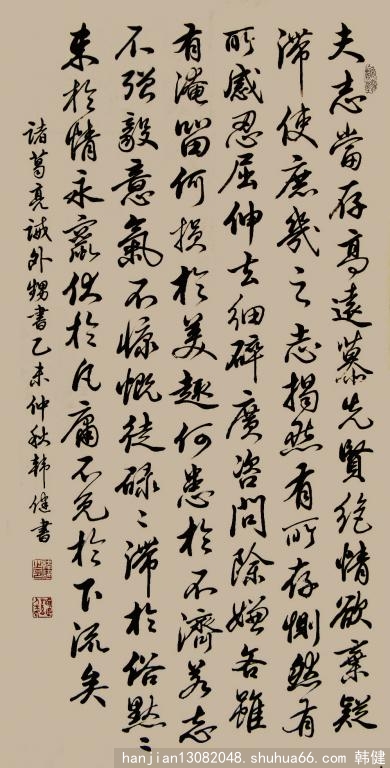 夫志當存高遠慕先賢絶情欲棄疑
滯使庶幾之志揭然有所存惻然有
所感忍屈伸去細碎廣咨問除嫌吝雖
有淹留何損於美趣何患於不濟若志
不强毅意氣不慷慨徒碌〻滯於俗默〻
束於情永竄伏於凡庸不免於下流矣
諸葛亮誡外甥書乙未仲秋韩健書
hanjian13082048. shuhua66. com 韩健